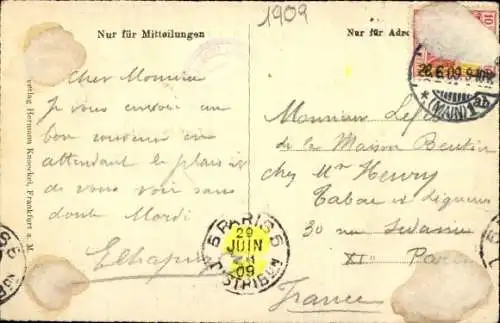 1909
Nur für Mitteilungen
Nur für Adre
10
28.6.09.9-10V.
* (MAIN) 1
Cher Monsieur
Je vous envoie un
bon souvenir en
attendant le plaisir
de vous voir sans
doute Mardi
Monsieur
de la Maison Bentin
chez Mr Henry
Tabac et Liqueurs
30 rue
XI Paris
France
PARIS 5
29
JUIN
09
DISTRIBON
Verlag Hermann Knoeckel, Frankfurt a. M.